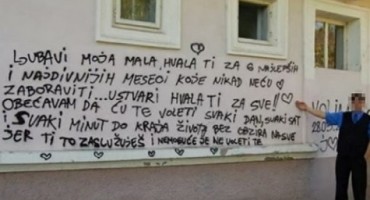 LJUBAVI MOJA MALA, HVALA TI ZA 6 NAJLEPŠIH
I NAJDIVNIJIH MESECI KOJE NIKAD NEĆU
ZABORAVITI... USTVARI HVALA TI ZA SVE!!
OBEĆAVAM DA ĆU TE VOLETI SVAKI DAN, SVAKI SAT
I SVAKI MINUT DO KRAJA ŽIVOTA BEZ OBZIRA NA SVE
JER TI TO ZASLUŽUJEŠ I NEMOGUĆE JE NE VOLETI TE